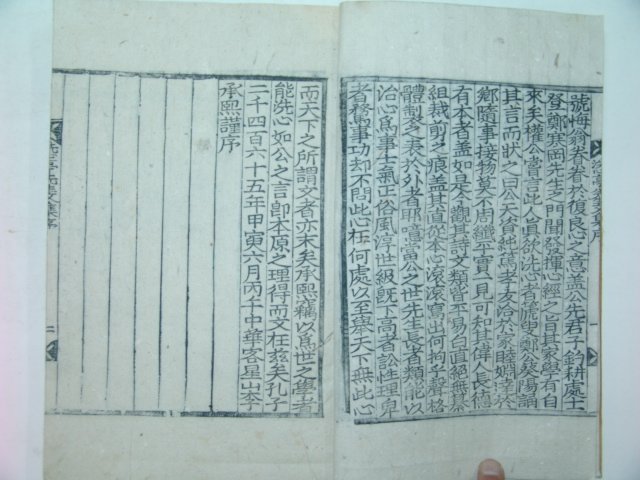 號悔翁眷眷於復良心之意盖公先君子釣耕處士
登鄭寒岡先生之門聞發揮心經之旨其家學有自
來矣權公嘗言此人眞欲洗心者虎叟鄭公葵陽誦
其言而狀之曰公天資純篤孝友洽於家睦婣達於
鄕隨事接物莫不周纖平實一見可知其偉人長德
有本者盖如是今觀其詩文類皆平易白直絕無某
組裁剪之痕盖其直從本心滾滾寫出何拘乎聲格
體製之美於外者耶噫當公之世先生長者類能以
治心爲事士氣正俗風淳世級旣下高者訟性理卑
者騖事功却不問此心在何處以至擧天下無此心
而天下之所謂文者亦末矣承熙竊以爲世之學者
能洗心如公之言卽本原之理得而文在玆矣孔子
二千四百六十五年甲寅六月丙午中華客星山李
承熙謹序